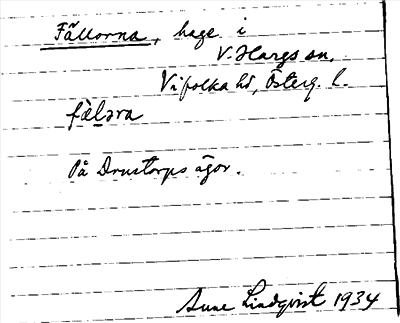 Fållorna, hage i
V. Hargs sn,
Vifolka hd, Österg. l.
få̀lɔra
På Drustorps ägor.
Sune Lindqvist 1934